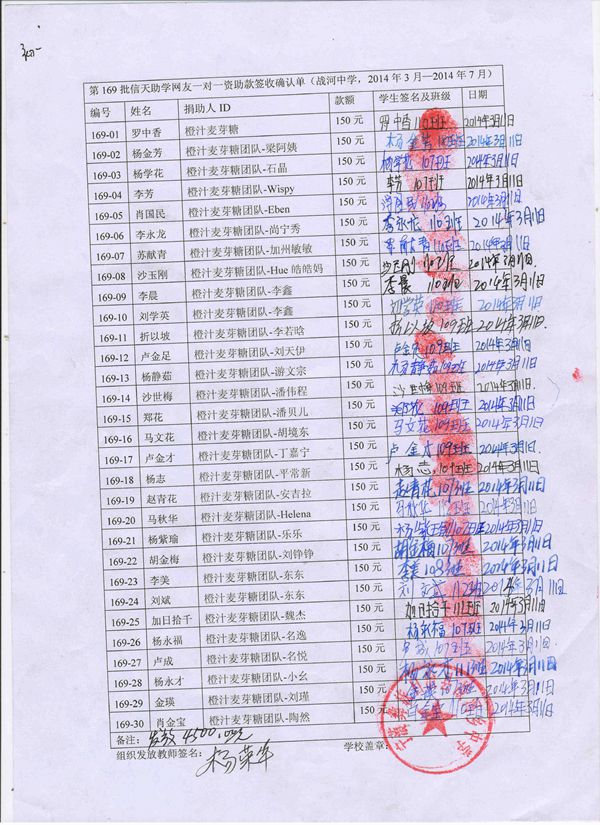 初一
第 169 批信天助学网友一对一资助款签收确认单（战河中学，2014 年 3 月—2014 年 7 月）
编号 姓名 捐助人 ID 款额 学生签名及班级 日期
169-01 罗中香 橙汁麦芽糖 150 元 罗中香 110班 2014年3月11日
169-02 杨金芳 橙汁麦芽糖团队-梁阿姨 150 元 2014年3月11日
169-03 杨学花 橙汁麦芽糖团队-石晶 150 元 杨学花 107班 2014年3月11日
169-04 李芳 橙汁麦芽糖团队-Wispy 150 元 李芳 107班 2014年3月11日
169-05 肖国民 橙汁麦芽糖团队-Eben 150 元 2014年3月11日
169-06 李永龙 橙汁麦芽糖团队-尚宁秀 150 元 李永龙 110班 2014年3月11日
169-07 苏献青 橙汁麦芽糖团队-加州敏敏 150 元 2014年3月11日
169-08 沙玉刚 橙汁麦芽糖团队-Hue 皓皓妈 150 元 沙玉刚 110班 2014年3月11日
169-09 李晨 橙汁麦芽糖团队-李鑫 150 元 李晨 110班 2014年3月11日
169-10 刘学英 橙汁麦芽糖团队-李鑫 150 元 刘学英 110班 2014年3月11日
169-11 折以坡 橙汁麦芽糖团队-李若晗 150 元 折以坡 109班 2014年3月11日.
169-12 卢金足 橙汁麦芽糖团队-刘天伊 150 元 卢金足 109班 2014年3月11日
169-13 杨静茹 橙汁麦芽糖团队-游文宗 150 元 杨静茹 109班 2014年3月11日
169-14 沙世梅 橙汁麦芽糖团队-潘伟程 150 元 沙世梅 109班 2014年3月11日.
169-15 郑花 橙汁麦芽糖团队-潘贝儿 150 元 郑花 109班 2014年3月11日
169-16 马文花 橙汁麦芽糖团队-胡境东 150 元 马文花 109班 2014年3月11日
169-17 卢金才 橙汁麦芽糖团队-丁嘉宁 150 元 卢金才 109班 2014年3月11日
169-18 杨志 橙汁麦芽糖团队-平常新 150 元 杨志 109班 2014年3月11日
169-19 赵青花 橙汁麦芽糖团队-安吉拉 150 元 赵青花 107班 2014年3月11日
169-20 马秋华 橙汁麦芽糖团队-Helena 150 元 马秋华 2014年3月11日
169-21 杨紫瑜 橙汁麦芽糖团队-乐乐 150 元 杨紫瑜 107班 2014年3月11日
169-22 胡金梅 橙汁麦芽糖团队-刘铮铮 150 元 胡金梅 107班 2014年3月11日
169-23 李美 橙汁麦芽糖团队-东东 150 元 李美 108班 2014年3月11日
169-24 刘斌 橙汁麦芽糖团队-东东 150 元 112班 2014年3月11日
169-25 加日拾千 橙汁麦芽糖团队-魏杰 150 元 加日拾千 112班 2014年3月11日
169-26 杨永福 橙汁麦芽糖团队-名逸 150 元 杨永福 107班 2014年3月11日
169-27 卢成 橙汁麦芽糖团队-名悦 150 元 107班 2014年3月11日
169-28 杨永才 橙汁麦芽糖团队-小幺 150 元 杨永才 113班 2014年3月11日
169-29 金瑛 橙汁麦芽糖团队-刘瑾 150 元 2014年3月11日
169-30 肖金宝 橙汁麦芽糖团队-陶然 150 元 2014年3月11日
备注：发放4500.00元
组织发放教师签名：杨荣华 学校盖章：